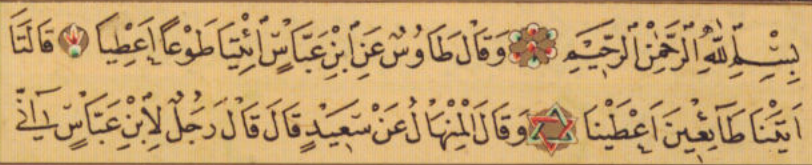 بِسْمِ اللّٰهِ الرَّحْمٰنِ الرَّحِيمِ وَقَالَ طَاوُسٌ عَنِ ابْنِ عَبَّاسٍ ائْتِيَا طَوْعًا اَعْطِيَا قَالَتَا
اَتَيْنَا طَائِعِينَ اَعْطَيْنَا وَقَالَ الْمِنْهَالُ عَنْ سَعِيدٍ قَالَ قَالَ رَجُلٌ لِابْنِ عَبَّاسٍ اِنِّي